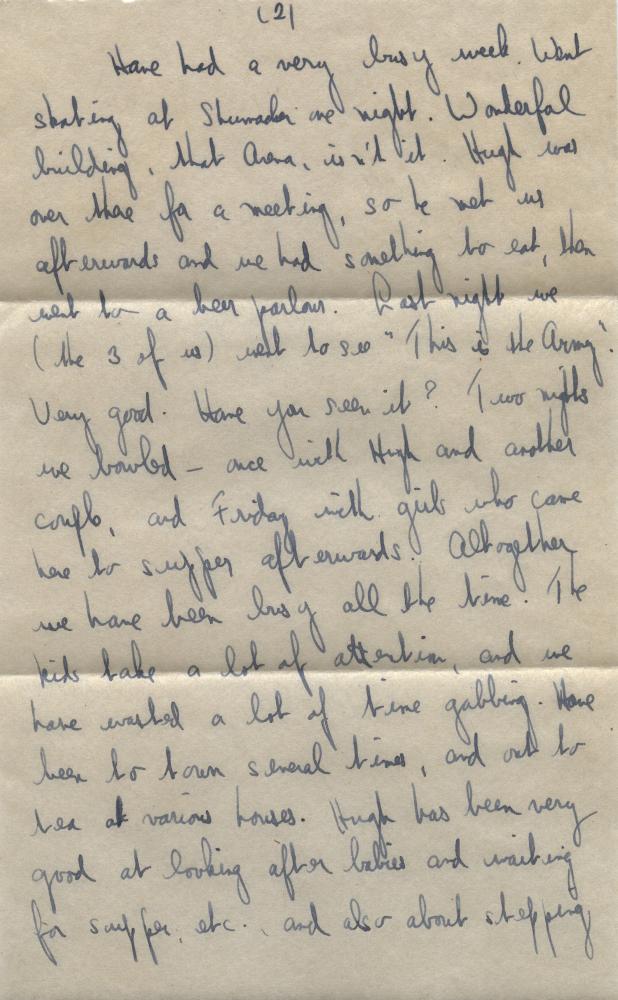 (2)
Have had a very busy week. Went
skating at Shumacher one night. Wonderful
building, that Arena, isn't it. Hugh was
over there for a meeting, so he met us
afterwards and we had something to eat, then
went to a beer parlour. Last night we
(the 3 of us) went to see "This is the Army".
Very good. Have you seen it? Two nights
we bowled – once with Hugh and another
couple, and Friday with girls who came
here to supper afterwards. Altogether
we have been busy all the time. The
kids take a lot of attention, and we
have wasted a lot of time gabbing. Have
been to town several times, and out to
tea at various houses. Hugh has been very
good at looking after babies and waiting
for supper, etc., and also about stepping